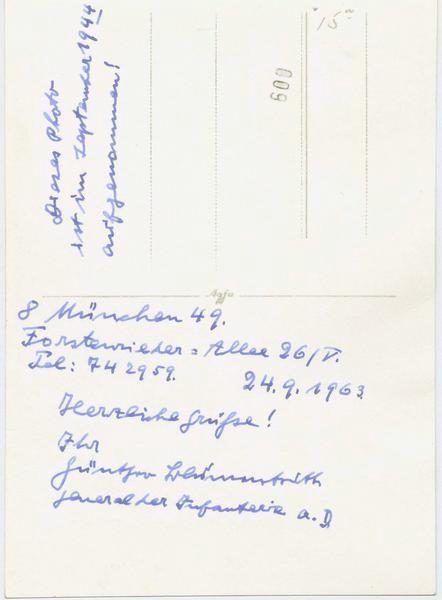 Dieses Photo
ist im September 1944
aufgenommen!
600
15
Agfa
8 München 49.
Forstenrieder = Allee 26/V.
Tel: 742959.
24.9.1963.
Herzliche Grüße!
Ihr
Günther Blumentritt
General der Infanterie a.D